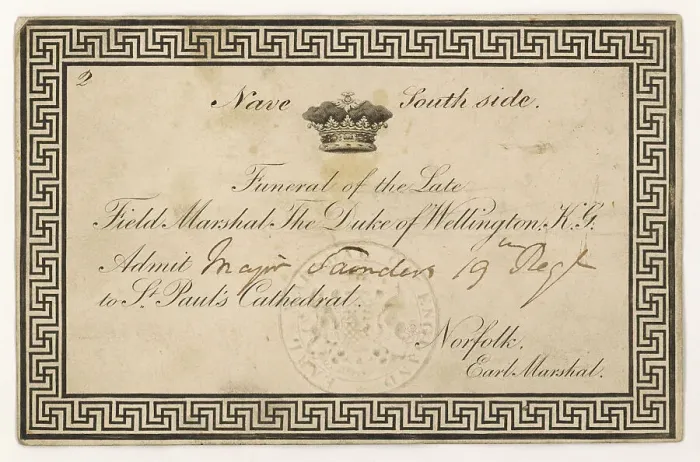 2
Nave South side.
Funeral of the Late
Field Marshal The Duke of Wellington, K.G.
Admit Major Saunders 19th Regt
to St. Paul's Cathedral.
Norfolk,
Earl Marshal.
ENGLAND